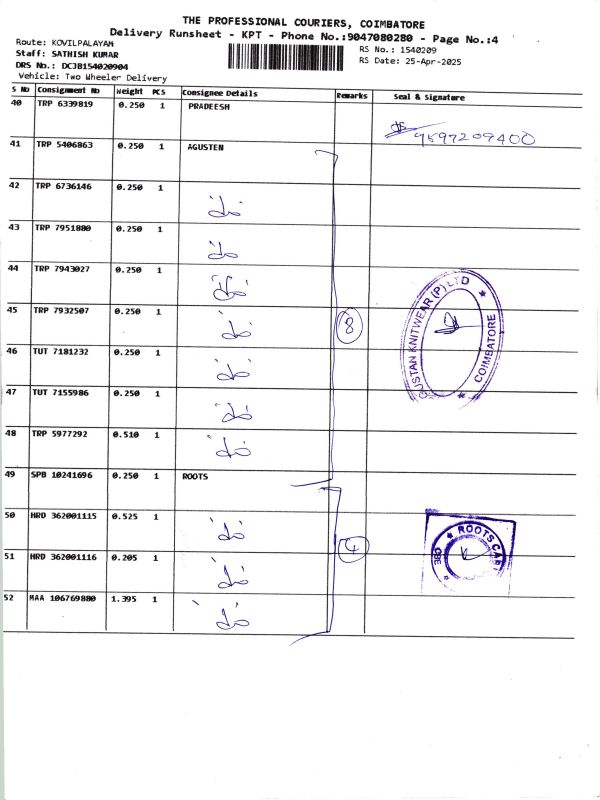 THE PROFESSIONAL COURIERS, COIMBATORE
Delivery Runsheet - KPT - Phone No.:9047080280 - Page No.:4
Route: KOVILPALAYAM
RS No.: 1540209
Staff: SATHISH KUMAR
RS Date: 25-Apr-2025
DRS No.: DCJB154020904
Vehicle: Two Wheeler Delivery
S No Consignment No Weight PCS Consignee Details Remarks Seal & Signature
40 TRP 6339819 0.250 1 PRADEESH
9597209400
41 TRP 5406863 0.250 1 AGUSTEN
42 TRP 6736146 0.250 1
43 TRP 7951880 0.250 1
44 TRP 7943027 0.250 1
45 TRP 7932507 0.250 1
8
GUSTAN KNITWEAR (P) LTD
COIMBATORE
46 TUT 7181232 0.250 1
47 TUT 7155986 0.250 1
48 TRP 5977292 0.510 1
49 SPB 10241696 0.250 1 ROOTS
50 HRD 362001115 0.525 1
4
ROOTS CAST
CBE
51 HRD 362001116 0.205 1
52 MAA 106769880 1.395 1